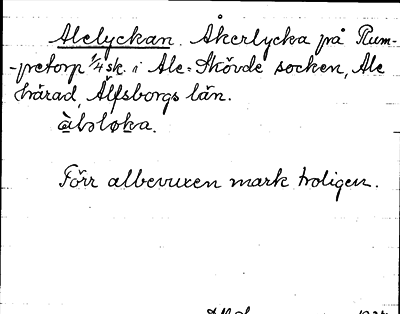 Alelyckan. Åkerlycka på Rum-
-pretorp 1/4 sk. i Ale-Skövde socken, Ale
härad, Älfsborgs län.
Förr albevuxen mark troligen.